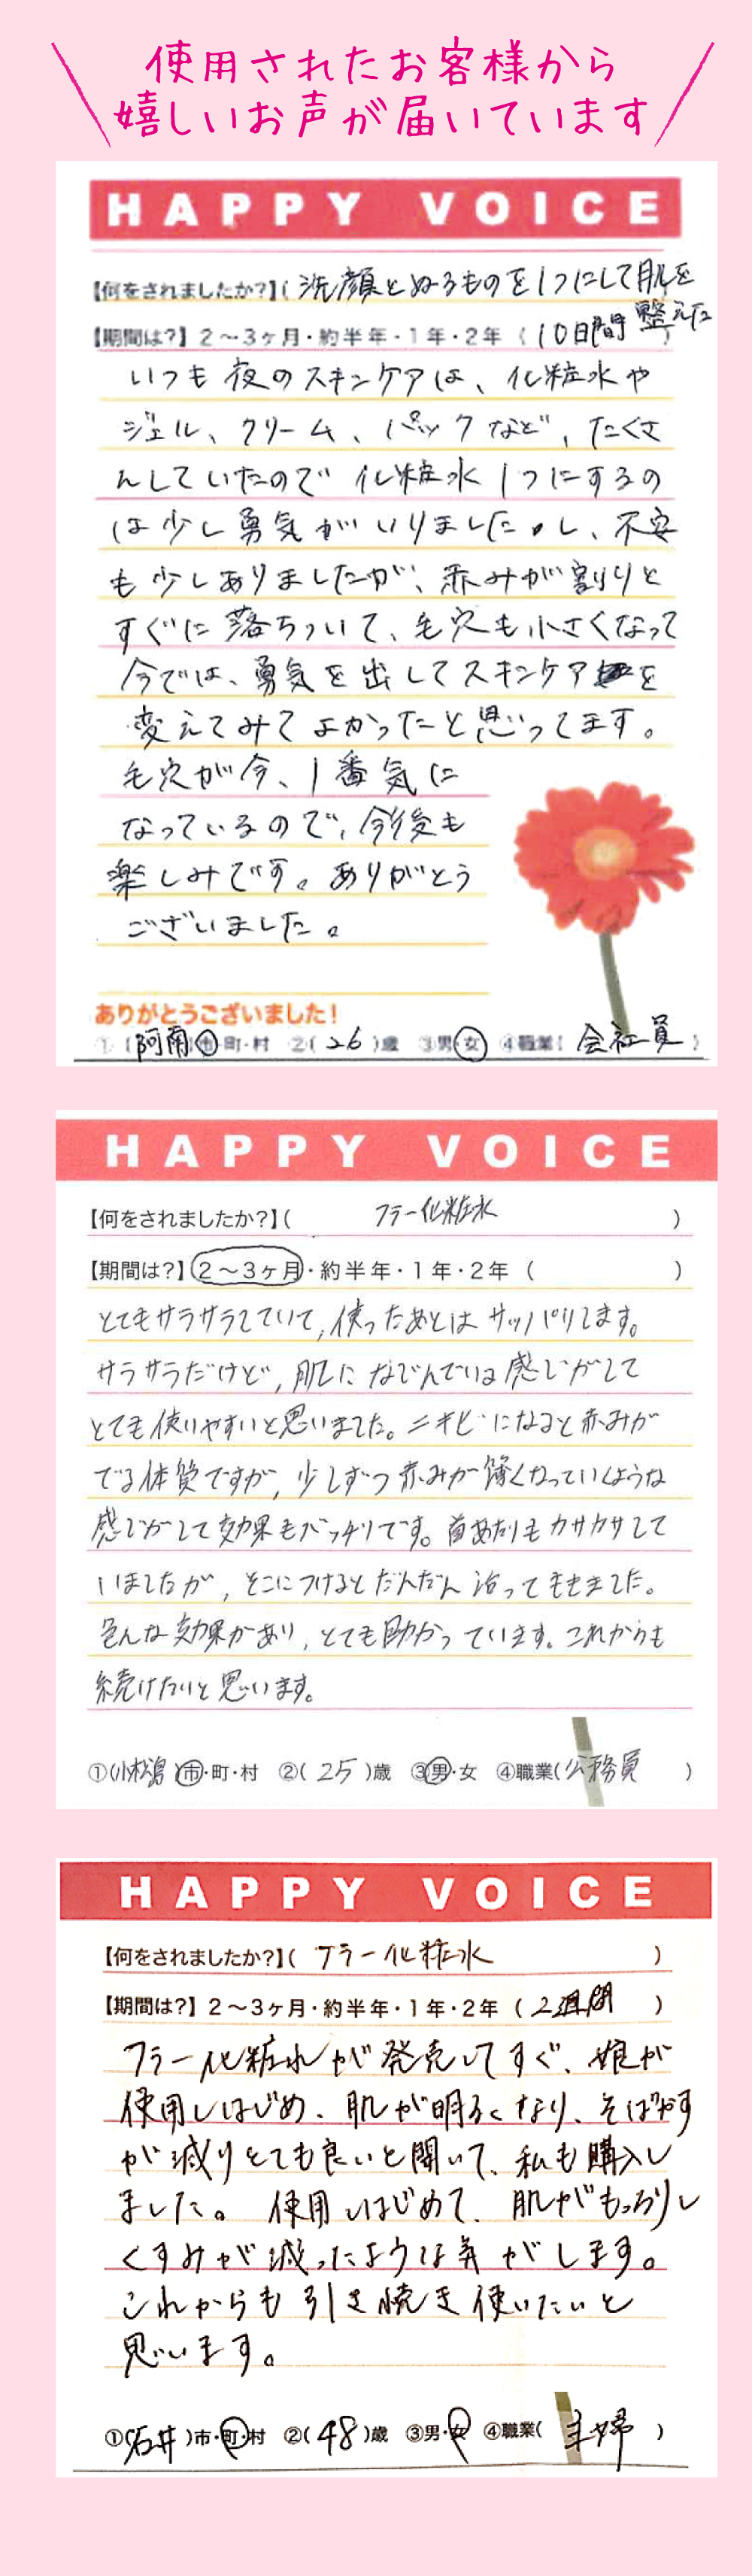 使用されたお客様から
嬉しいお声が届いています
HAPPY VOICE
【何をされましたか?】( 洗顔とぬるものを1つにして肌を
整えた
【期間は?】2〜3ヶ月・約半年・1年・2年 ( 10日間 )
いつも夜のスキンケアは、化粧水や
ジェル、クリーム、パックなど、たくさ
んしていたので化粧水1つにするの
は少し勇気がいりました。し、不安
も少しありましたが、赤みが割りと
すぐに落ちついて、毛穴も小さくなって
今では、勇気を出してスキンケアを
変えてみてよかったと思ってます。
毛穴が今、1番気に
なっているので、今後も
楽しみです。ありがとう
ございました。
ありがとうございました!
①(阿南)市・町・村 ②( 26 )歳 ③男・女 ④職業( 会社員 )
HAPPY VOICE
【何をされましたか?】( フラー化粧水 )
【期間は?】2〜3ヶ月・約半年・1年・2年 ( )
とてもサラサラしていて、使ったあとはサッパリします。
サラサラだけど、肌になじんでいる感じがして
とても使いやすいと思いました。ニキビになると赤みが
でる体質ですが、少しずつ赤みが薄くなっていくような
感じがして効果もバッチリです。首あたりもカサカサして
いましたが、そこにつけるとだんだん治ってきました。
色んな効果があり、とても助かっています。これからも
続けたいと思います。
①(小松島)市・町・村 ②( 25 )歳 ③男・女 ④職業( 公務員 )
HAPPY VOICE
【何をされましたか?】( フラー化粧水 )
【期間は?】2〜3ヶ月・約半年・1年・2年 ( 2週間 )
フラー化粧水が発売してすぐ、娘が
使用しはじめ、肌が明るくなり、そばかす
が減りとても良いと聞いて、私も購入し
ました。使用しはじめて、肌がもっちりし
くすみが減ったような気がします。
これからも引き続き使いたいと
思います。
①(石井)市・町・村 ②( 48 )歳 ③男・女 ④職業( 主婦 )